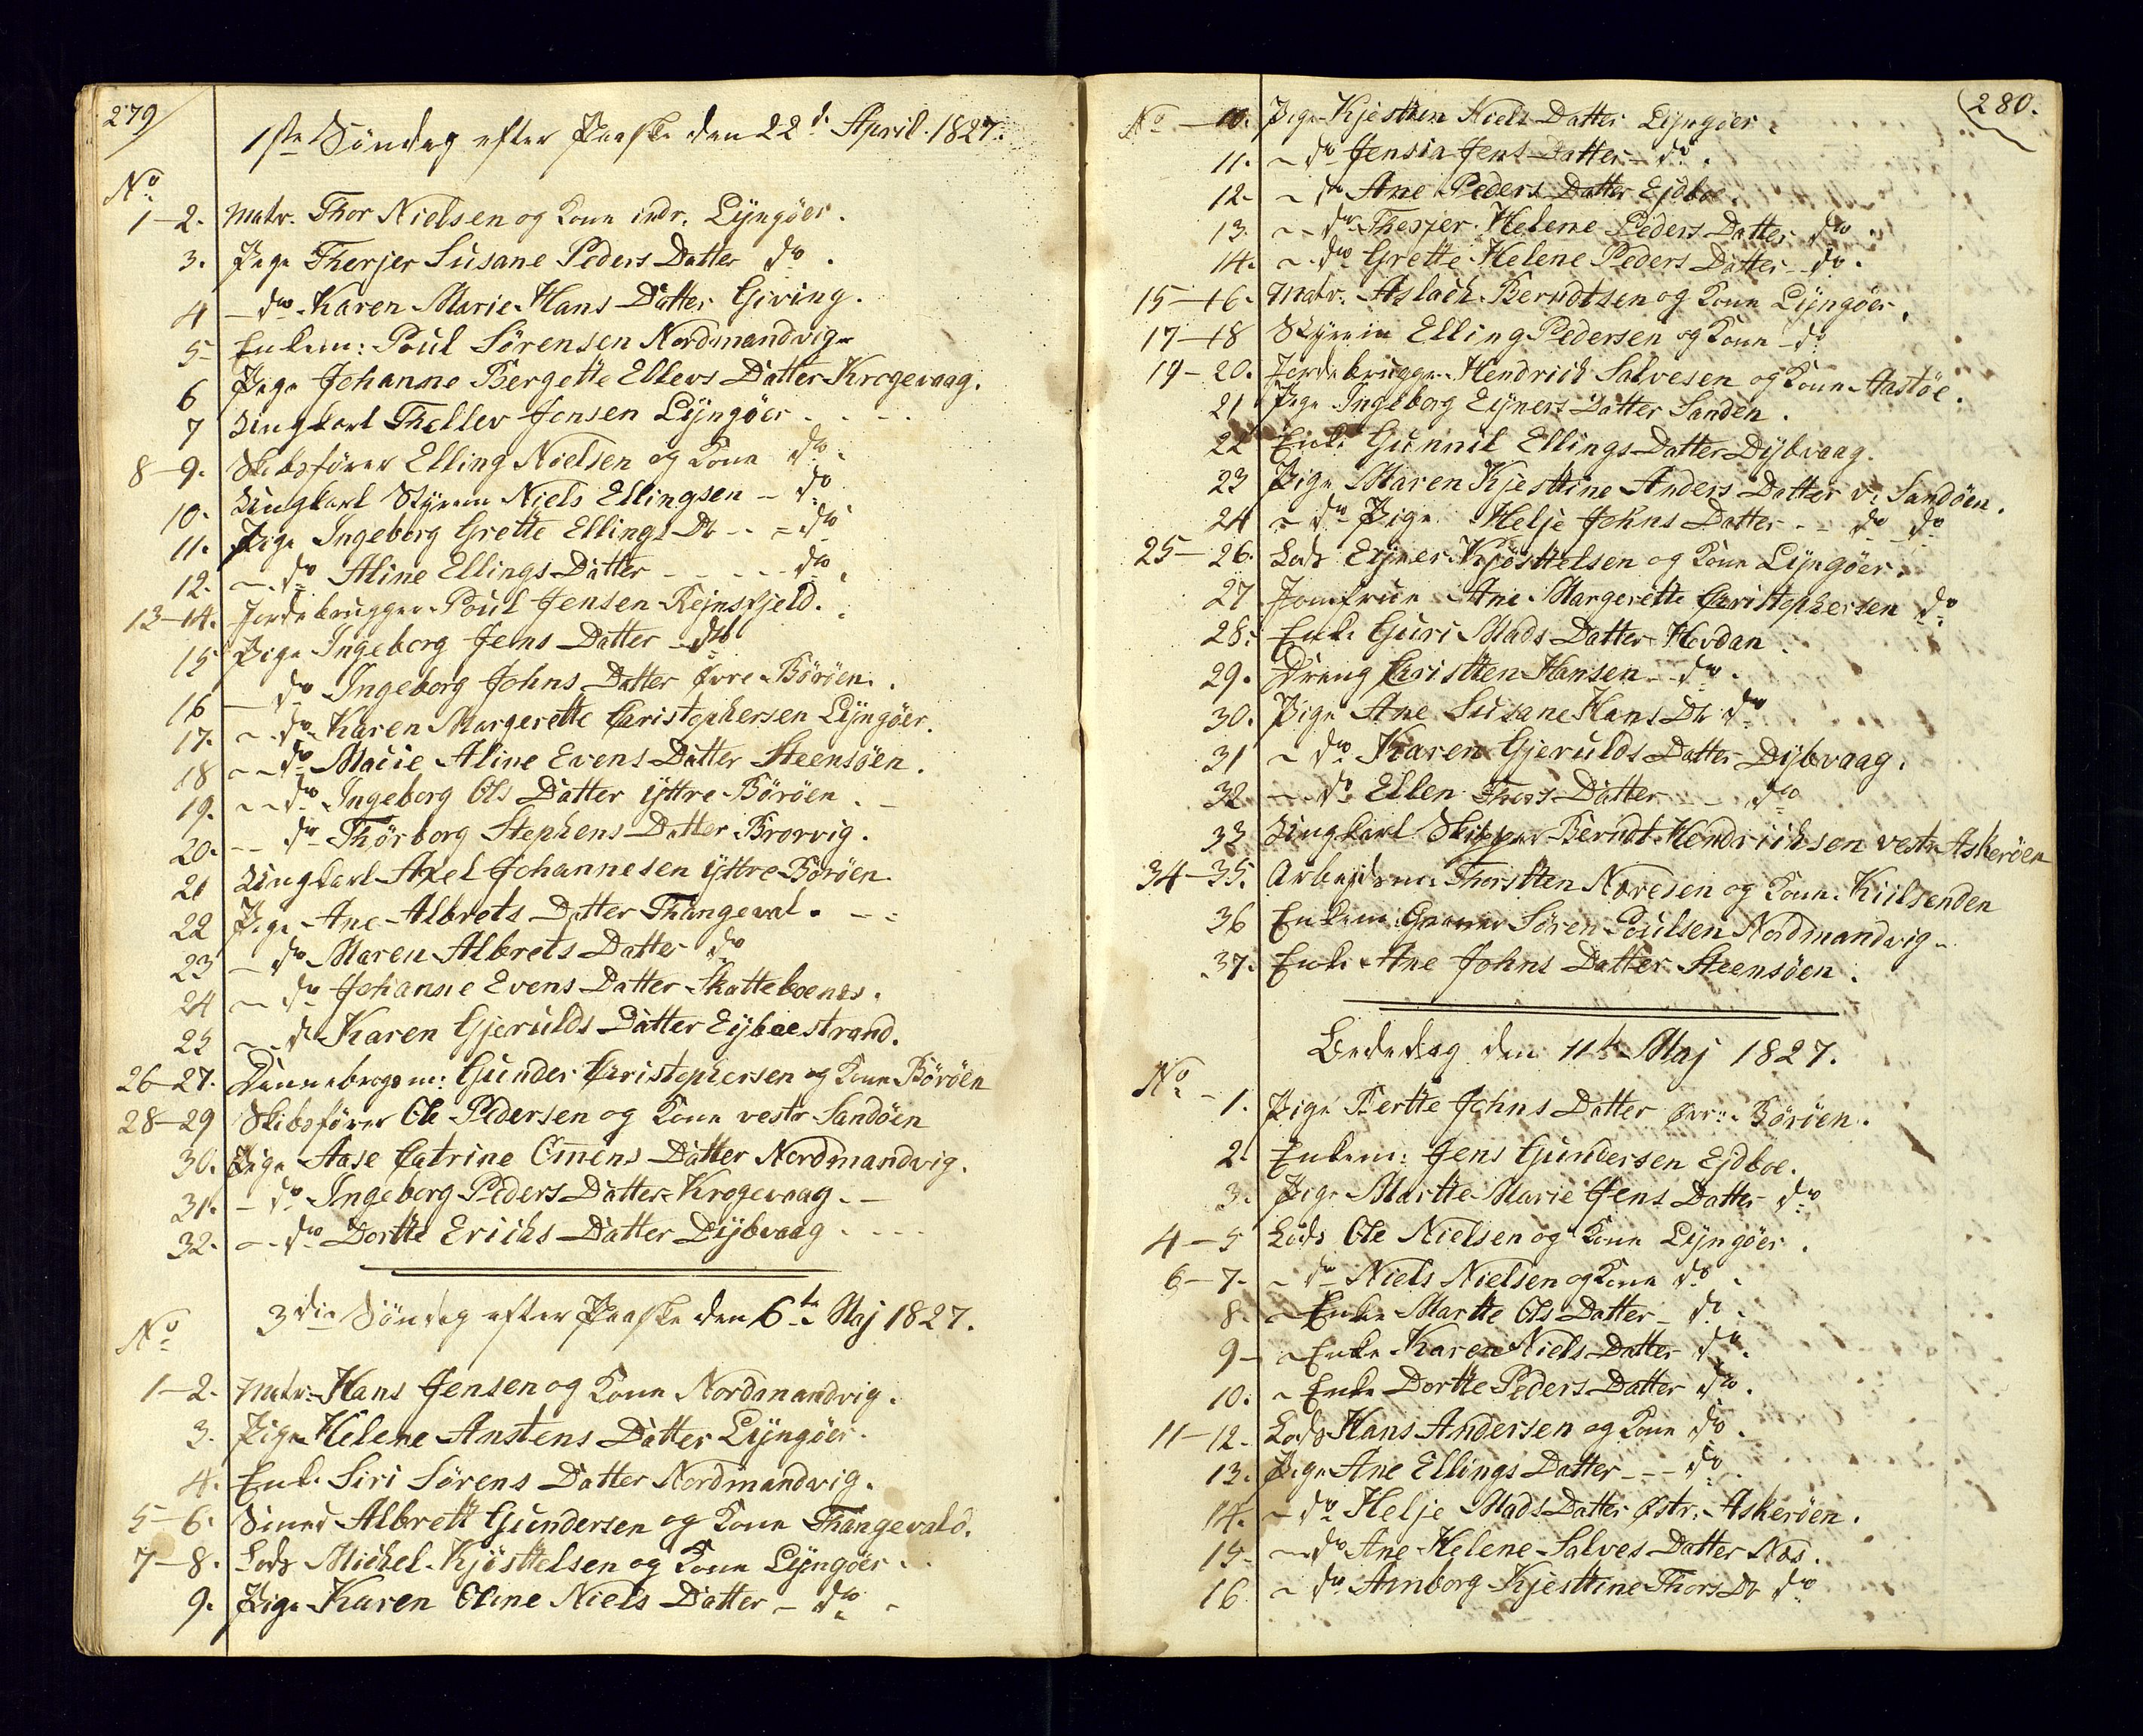 279
1ste Söndag efter Paaske den 22de April 1827.
No
1-2. Matr. Thor Nielsen og Kone indr. Lyngöer.
3. Pige Therjer Susane Peders Datter do.
4 - do Karen Marie Hans Datter Giving.
5 Enkem: Poul Sørensen Nordmandvig
6 Pige Johanne Bergette Ellevs Datter Krogevaag.
7 Ungkarl Thellev Jensen Lyngöer
8-9. Skibsfører Elling Nielsen og Kone do.
10. Ungkarl Styrm Niels Ellingsen - do
11. Pige Ingeborg Grette Ellings Dr - = do
12. - do Aline Ellings Datter - - - - do.
13-14. Jordebrugger Poul Jensen Rejnsfjeld.
15 Pige Ingeborg Jens Datter do
16 - do Ingeborg Johns Datter øvre Böröen.
17. - do Karen Margerette Christophersen Lyngöer.
18 - - do Marie Aline Evens Datter Steensöen.
19. - - do Ingeborg Ols Datter ÿttre Böröen. -
20. - - do Thörborg Stephens Datter Brorvig.
21 Ungkarl Axel Johannesen ÿttre Böröen.
22 Pige Ane Albrets Datter Thangeval. - -
23 - do Maren Albrets Datter do
24 - do Johanne Evens Datter Skatteboenes.
25 - do Karen Gjerulds Datter Eÿboestrand.
26-27. Dannebrogsm: Gunder Christophersen og Kone Böröen
28-29 Skibsfører Ole Pedersen og Kone vestr Sandöen
30. Pige Aase Catrine Omens Datter Nordmandvig.
31. - do Ingeborg Peders Datter Krogevaag. -
32. - do Dortte Erichs Datter Dÿbvaag - - - -
3die Söndag efter Paaske den 6te Maj 1827.
No
1-2. Matr. Hans Jensen og Kone Nordmandvig.
3. Pige Helene Anstens Datter Lÿngöer.
4. Enke Siri Sørens Datter Nordmandvig.
5-6. Smed Albrett Gundersen og Kone Thangevald.
7-8. Lods Michel Kjösttelsen og Kone Lÿngöer.
9. Pige Karen Oline Niels Datter - do -
280.
No - 10. Pige Kjesten Niels Datter Lÿngöer.
11. - do Jensia Jens Datter - do.
12. - do Ane Peders Datter Ejdboe.
13. - - do Therjer Helene Peders Datter do.
14. - do Grette Helene Peders Datter - do.
15-16. Matr. Aslach Berndtsen og Kone Lÿngöer.
17-18 Styrm Elling Pedersen og Kone - do
19-20. Jordebrugger Hendrich Salvesen og Kone Aastöe.
21 Pige Ingeborg Eÿners Datter Sanden.
22 Enke Gunnil Ellings Datter Dÿbvaag.
23 Pige Maren Kjesttine Anders Datter v. Sandöen.
24 - do Pige Helje Johns Datter - - do do
25-26. Lods Eÿner Kjösttelsen og Kone Lÿngöer.
27 Jomfrue Ane Margerette Christophersen do
28. Enke Guri Mads Datter Hovdan.
29. Dreng Christen Hansen - do.
30. Pige Ane Susane Hans Dr do
31 - do Karen Gjerulds Datter Dÿbvaag.
32 - do Ellen Thors Datter - - do
33 Ungkarl Skipper Berndt Hendrichsen vestr Askeröen
34-35. Arbejdsm. Thorsten Noresen og Kone Kiilsenden
36 Enkem Søren Poulsen Nordmandvig
37. Enke Ane Johns Datter Steensöen.
Bededag den 11te Maj 1827.
No - 1. Pige Bertte Johns Datter øvre Böröen.
2. Enkem: Jens Gundersen Ejdboe.
3. Pige Martte Marie Jens Datter do
4-5 Lods Ole Nielsen og Kone Lÿngöer.
6-7. - do Niels Nielsen og Kone do.
8. - Enke Martte Ols Datter - do.
9 - Enke Karen Niels Datter do.
10. - Enke Dortte Peders Datter do.
11-12. Lods Hans Andersen og Kone do.
13. Pige Ane Ellings Datter - - - do
14. - do Helje Mads Datter Østr. Askeröen.
15 - do Ane Helene Salves Datter Næs.
16 - do Amborg Kjesttine Thors Dr do